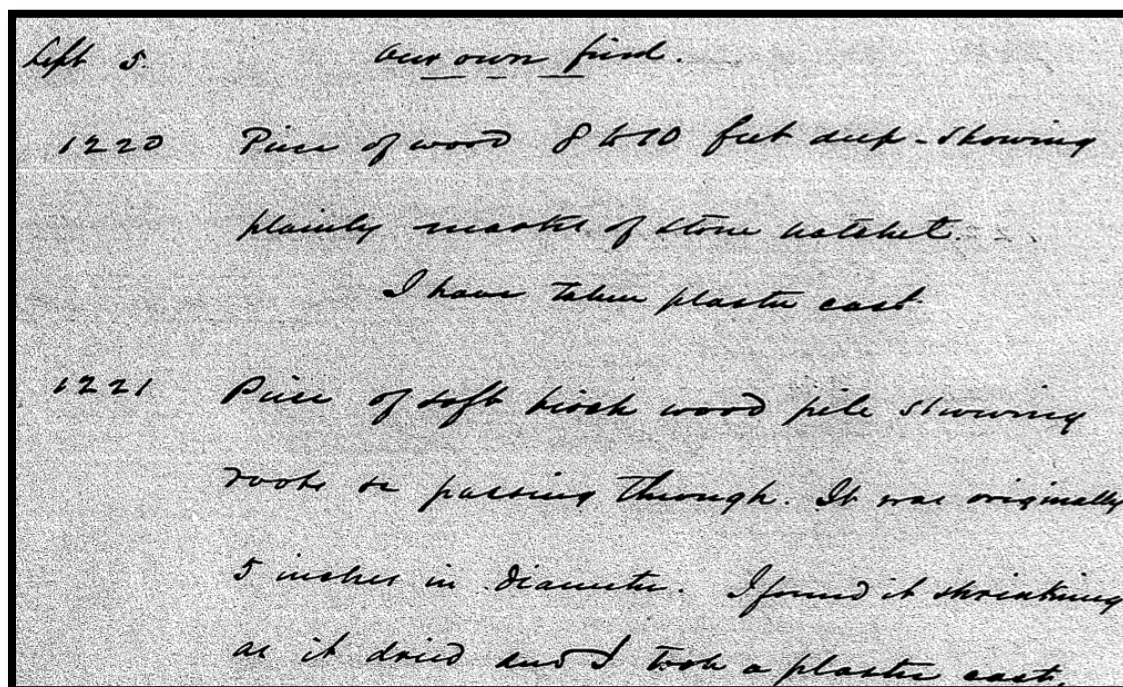 Sept 5. our own find.
1220 Piece of wood 8 to 10 feet deep - showing
plainly marks of stone hatchet.
I have taken plaster cast
1221 Piece of soft birch wood pile showing
roots passing through. It was originally
5 inches in diameter. I found it shrinking
as it dried and I took a plaster cast.